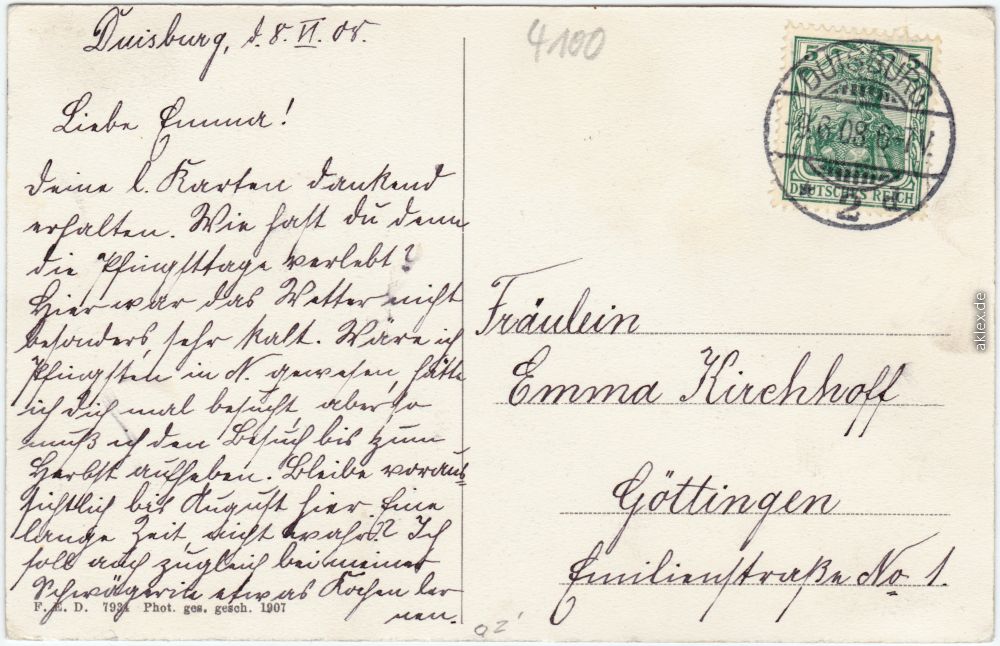 Duisburg, d. 8. VI. 08.
4100
Liebe Emma!
Deine l. Karten dankend
erhalten. Wie hast du denn
die Pfingsttage verlebt?
Hier war das Wetter nicht
besonders, sehr kalt. Wäre ich
Pfingsten in N. gewesen, hätte
ich dich mal besucht, aber so
muß ich den Besuch bis zum
Herbst aufheben. Bleibe voraus-
sichtlich bis August hier. Eine
lange Zeit nicht wahr? Ich
soll auch zugleich bei meiner
Schwägerin etwas Kochen ler
nen.
F. E. D. 7934 Phot. ges. gesch. 1907
5 5
DEUTSCHES REICH
DUISBURG
9.6.08.6-7V.
* 2 d
Fräulein
Emma Kirchhoff
Göttingen
Emilienstraße No 1.
aklex.de